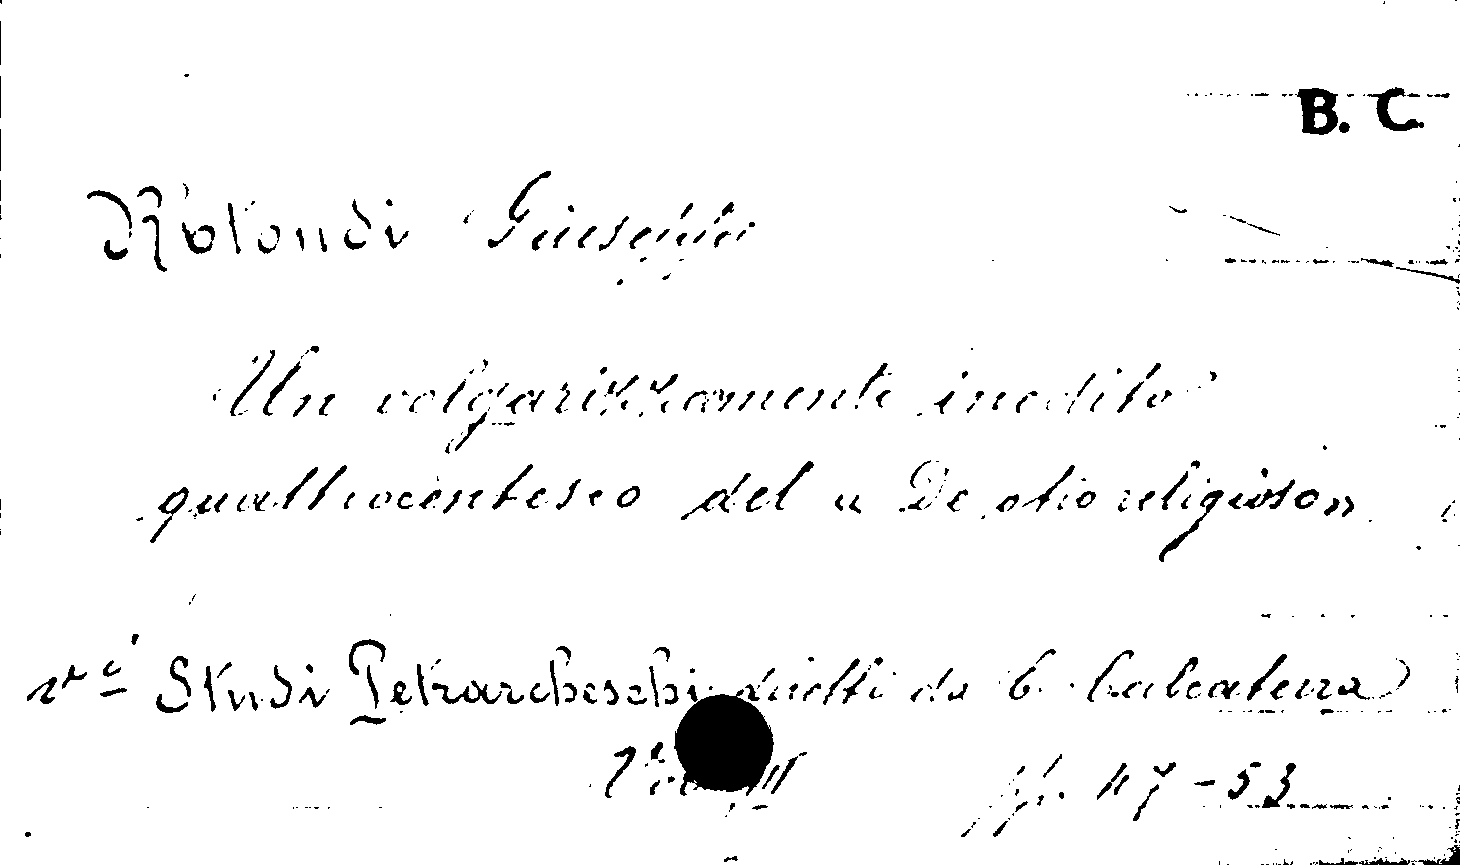 B. C.
Rotondi Giuseppe
Un volgarizzamento inedito
quattrocentesco del « De otio religioso »
vi Studi Petrarcheschi diretti da C. Calcaterra
pp. 47-53